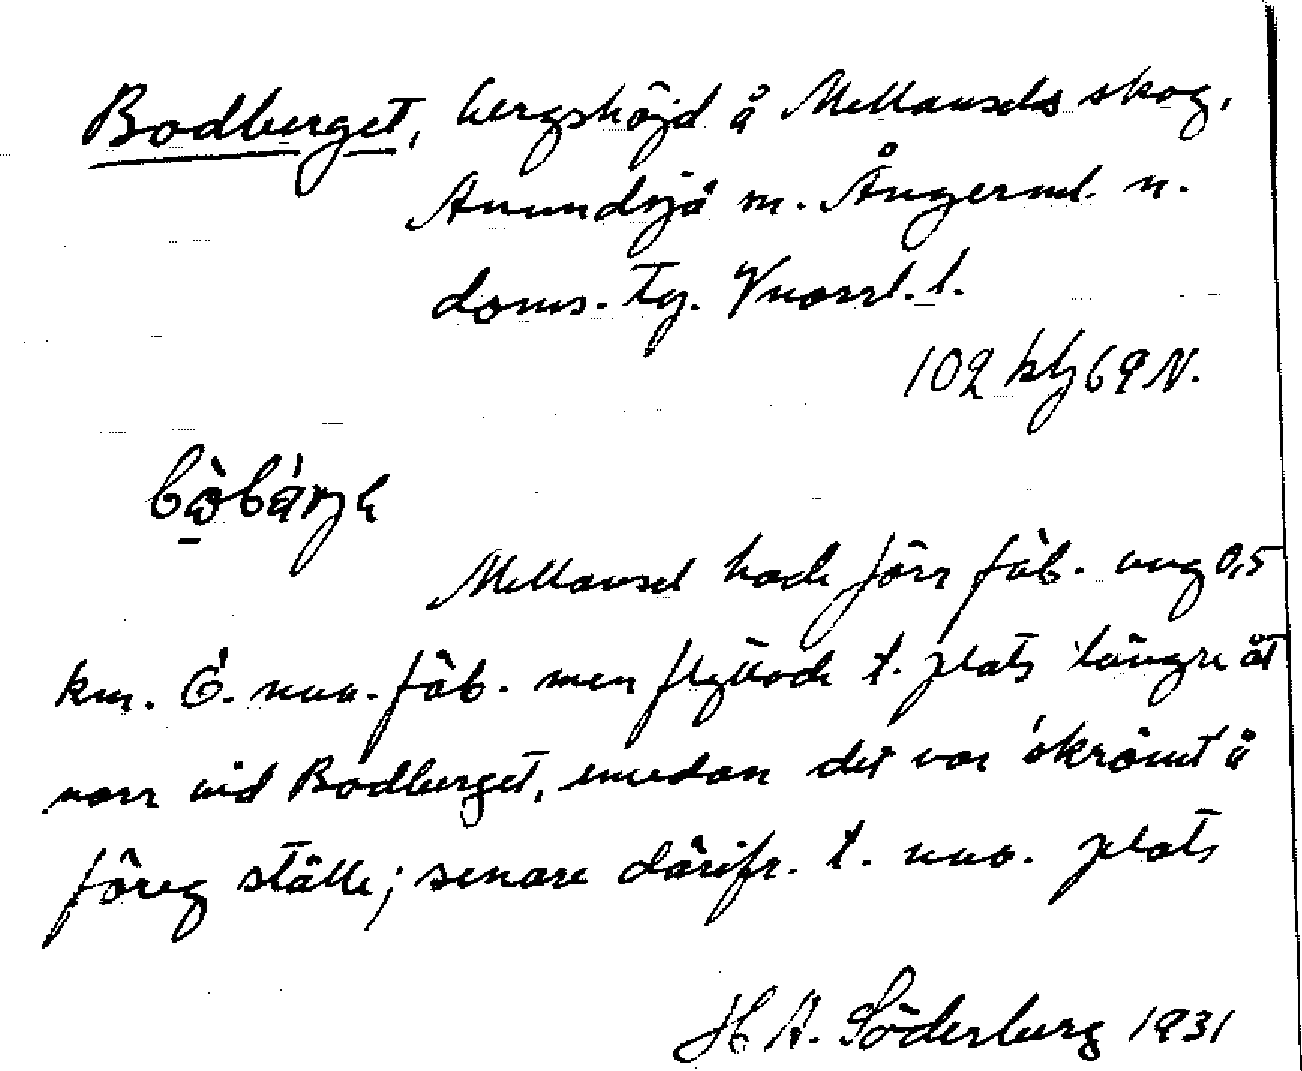 Bodberget, bergshöjd å Mellansels skog,
Anundsjö sn. Ångerml. n.
doms. tg. Vnorrl. l.
102 kfz 69 N.
Mellansel hade förr fäb. ung 0,5
km. Ö. nuv. fäb. men flyttade t. plats längre åt
norr vid Bodberget, emedan det var 'okrömt å
föreg ställe; senare därifr. t. nuv. plats
H A. Söderberg 1931